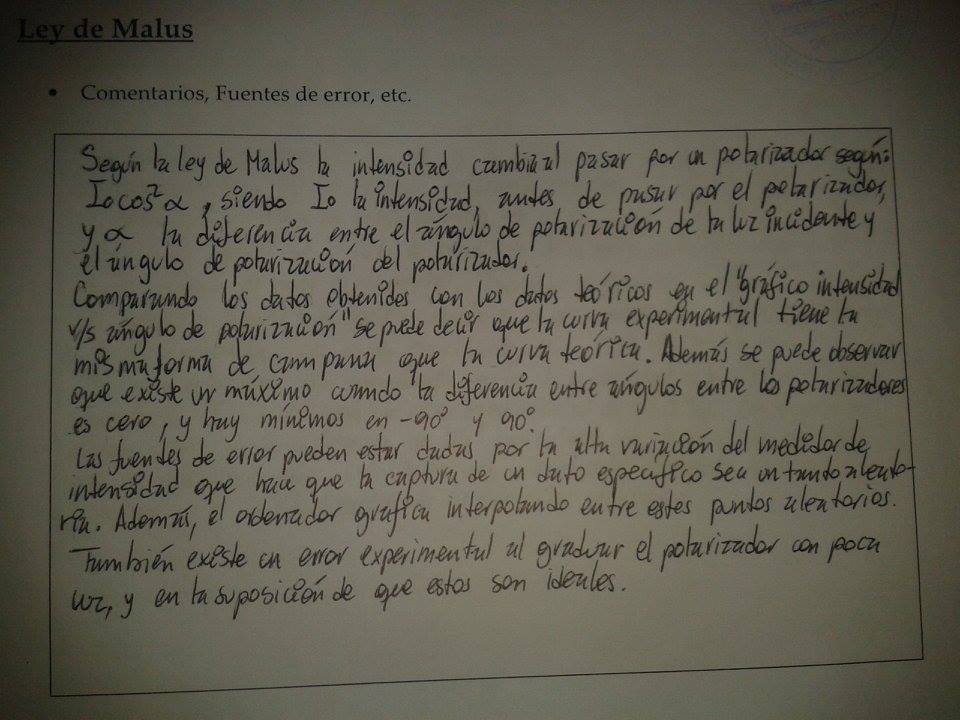 Ley de Malus
• Comentarios, Fuentes de error, etc.
Según la ley de Malus la intensidad cambia al pasar por un polarizador según:
I₀cos²α, siendo I₀ la intensidad, antes de pasar por el polarizador,
y α la diferencia entre el ángulo de polarización de la luz incidente y
el ángulo de polarización del polarizador.
Comparando los datos obtenidos con los datos teóricos en el "gráfico intensidad
v/s ángulo de polarización" se puede decir que la curva experimental tiene la
misma forma de campana que la curva teórica. Además se puede observar
que existe un máximo cuando la diferencia entre ángulos entre los polarizadores
es cero, y hay mínimos en -90° y 90°.
Las fuentes de error pueden estar dadas por la alta variación del medidor de
intensidad que hace que la captura de un dato específico sea un tando aleato-
ria. Además, el ordenador grafica interpolando entre estos puntos aleatorios.
También existe un error experimental al graduar el polarizador con poca
luz, y en la suposición de que estos son ideales.